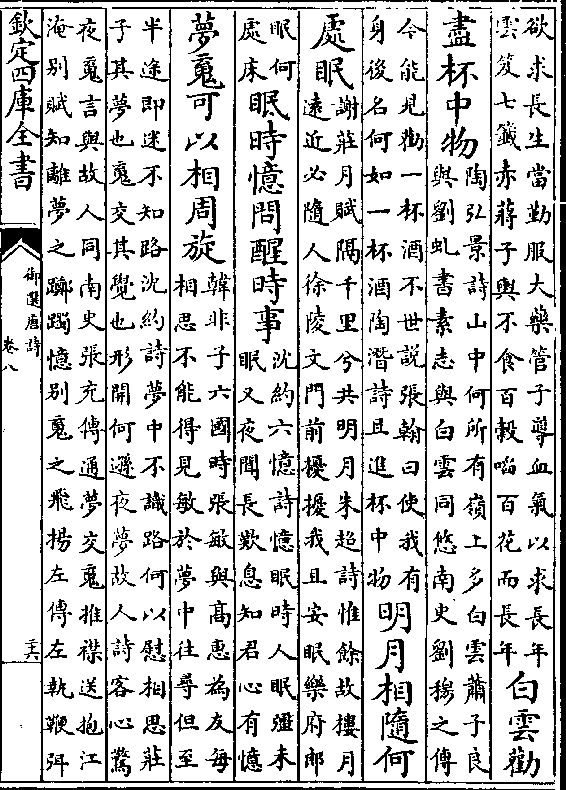 欲求長生當勤服大藥管子導血氣以求長年
雲笈七籤赤蔣子輿不食百穀啗百花而長年
白雲勸
盡杯中物
陶弘景詩山中何所有嶺上多白雲蕭子良
與劉虬書素志與白雲同悠南史劉穆之傳
今能見勸一杯酒不世說張翰曰使我有
身後名何如一杯酒陶潛詩且進杯中物
明月相隨何
處眠
謝莊月賦隔千里兮共明月朱超詩惟餘故樓月
遠近必隨人徐陵文門前擾擾我且安眠樂府郎
眠何
處床
眠時憶問醒時事
沈約六憶詩憶眠時人眠彊未
眠又夜聞長歎息知君心有憶
夢魂可以相周旋
韓非子六國時張敏與高惠為友每
相思不能得見敏於夢中往尋但至
半途即迷不知路沈約詩夢中不識路何以慰相思莊
子其夢也魂交其覺也形開何遜夜夢故人詩客心驚
夜魂言與故人同南史張充傳通夢交魂推襟送抱江
淹別賦知離夢之躑躅憶別魂之飛揚左傳左執鞭弭
欽定四庫全書
御選唐詩
卷八